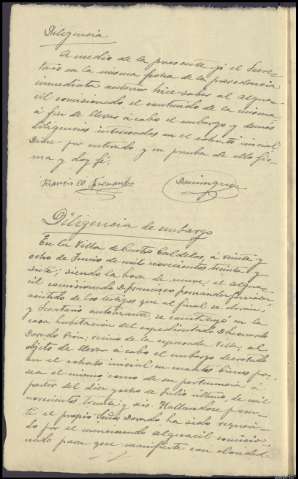 Diligencia
A medio de la presente yo el Secre-
tario en la misma fecha de la precedencia
inmediata anterior hice saber al algua-
cil comisionado el contenido de la misma
a fin de llevar a cabo el embargo y demás
diligencias interesadas en el exhorto inicial
Dióse por enterado y en prueba de ello fir-
ma y doy fé.
Francisco Fernandez Dominguez
Diligencia de embargo
En la Villa de Castro Caldelas, a veinti y
ocho de Junio de mil novecientos treinta y
siendo la hora de nueve, el algua-
cil comisionado D. Francisco Fernandez
asistido de los testigos que al final se dirán
y Secretario autorizante, se constituyó en la
casa habitación del expedientado D.
Dorado vecino de la expresada Villa, al
objeto de llevar a cabo el embargo decretado
en el exhorto inicial en cuantos bienes po-
sea el mismo como de su pertenencia a
partir del diez y ocho de Julio último de mil
novecientos treinta y seis. Hallandose presen-
te el propio Señor Dorado ha sido requeri-
do por el mencionado alguacil comisio-
nado para que manifieste con claridad